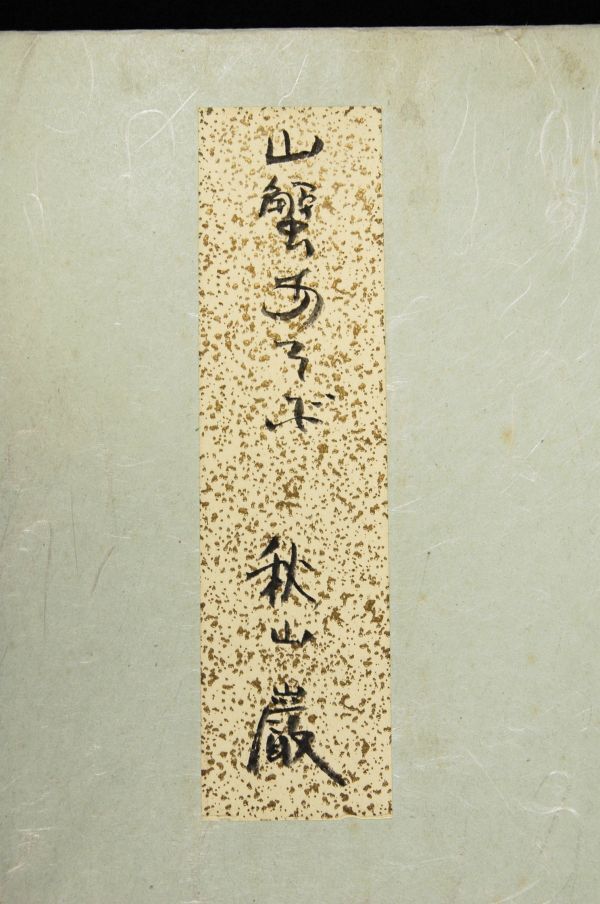 山蟹あそぶ
秋山巖